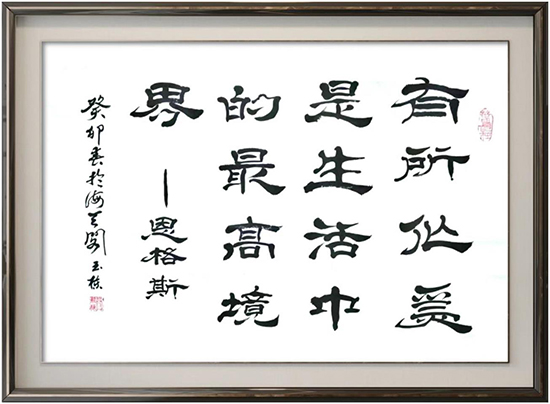 有所作爲
是生活中
的最高境
界
—恩格斯
癸卯春於海天閣 玉